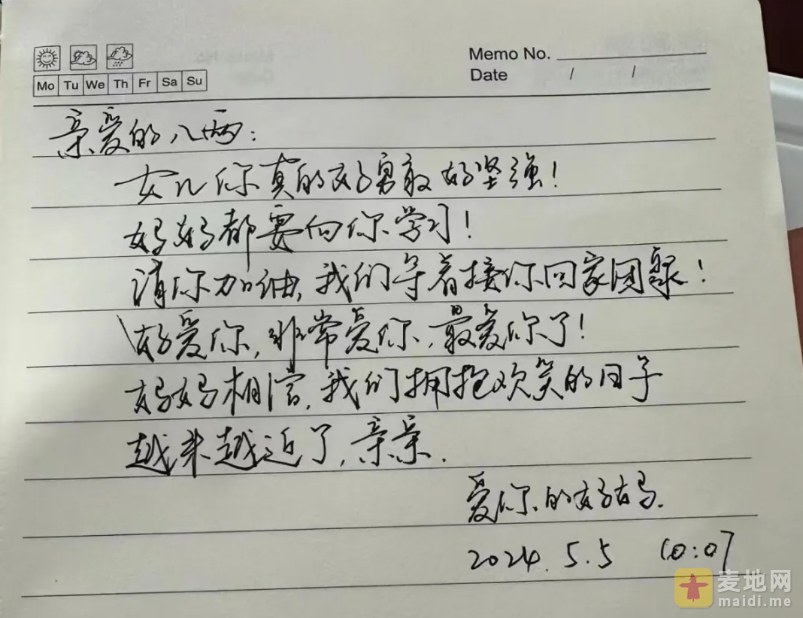 Memo No.
Mo Tu We Th Fr Sa Su
Date / /
亲爱的八两:
女儿你真的好勇敢好坚强!
妈妈都要向你学习!
请你加油,我们等着接你回家团聚!
好爱你,非常爱你,最爱你了!
妈妈相信,我们拥抱欢笑的日子
越来越近了,亲亲.
爱你的妈妈.
2024.5.5 10:07
麦地网
maidi.me